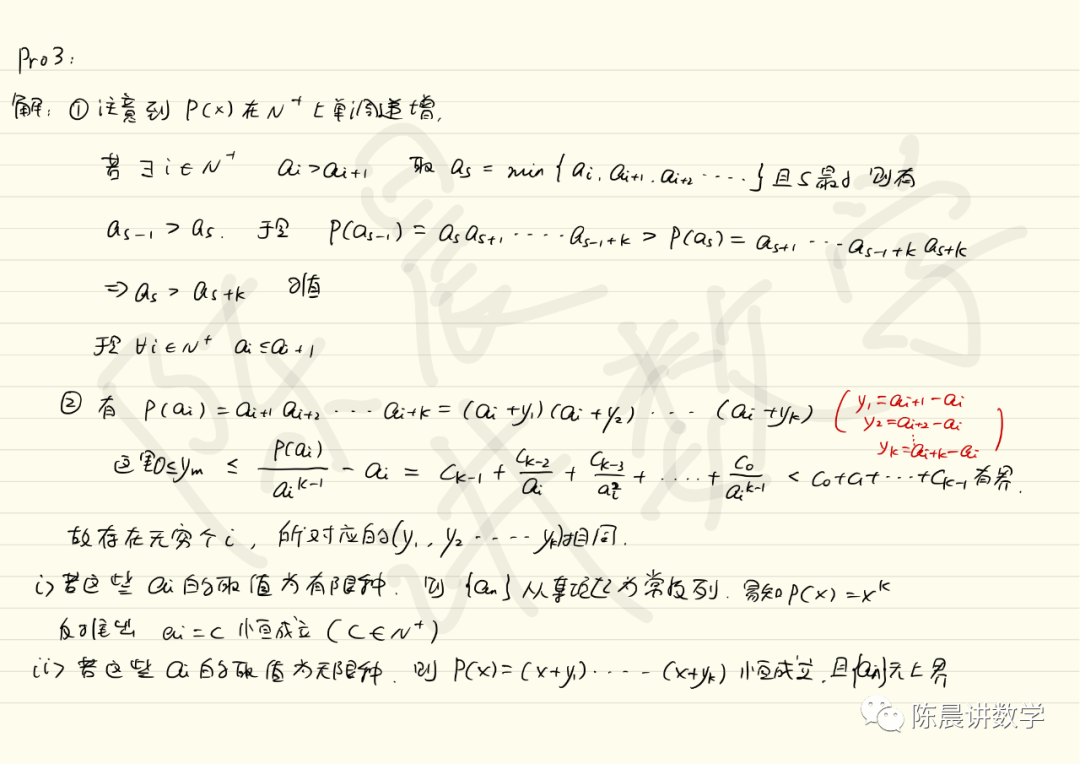 Pro 3:
解: ① 注意到 P(x) 在 N⁺ 上单调递增,
若 ∃ i ∈ N⁺ aᵢ > aᵢ₊₁ 取 aₛ = min { aᵢ, aᵢ₊₁, aᵢ₊₂ ····· } 且 S 最小 则有
aₛ₋₁ > aₛ. 于是 P(aₛ₋₁) = aₛ aₛ₊₁ ····· aₛ₋₁₊ₖ > P(aₛ) = aₛ₊₁ ··· aₛ₋₁₊ₖ aₛ₊ₖ
⇒ aₛ > aₛ₊ₖ 矛盾
于是 ∀ i ∈ N⁺ aᵢ ≤ aᵢ₊₁
② 有 P(aᵢ) = aᵢ₊₁ aᵢ₊₂ ··· aᵢ₊ₖ = (aᵢ + y₁)(aᵢ + y₂) ··· (aᵢ + yₖ) ( y₁ = aᵢ₊₁ - aᵢ
y₂ = aᵢ₊₂ - aᵢ
⋮
yₖ = aᵢ₊ₖ - aᵢ )
这里 0 ≤ yₘ ≤ P(aᵢ)/aᵢᵏ⁻¹ - aᵢ = Cₖ₋₁ + Cₖ₋₂/aᵢ + Cₖ₋₃/aᵢ² + ···· + C₀/aᵢᵏ⁻¹ < C₀ + C₁ + ··· + Cₖ₋₁ 有界.
故存在无穷个 i, 所对应的 (y₁, y₂ ····· yₖ) 相同.
i> 若这些 aᵢ 的取值为有限种. 则 {aₙ} 从某项起为常数列. 易知 P(x) = xᵏ
反推出 aᵢ = c 恒成立 (C ∈ N⁺)
ii> 若这些 aᵢ 的取值为无限种. 则 P(x) = (x + y₁) ····· (x + yₖ) 恒成立, 且 {aₙ} 无上界
陈晨讲数学
陈晨讲数学